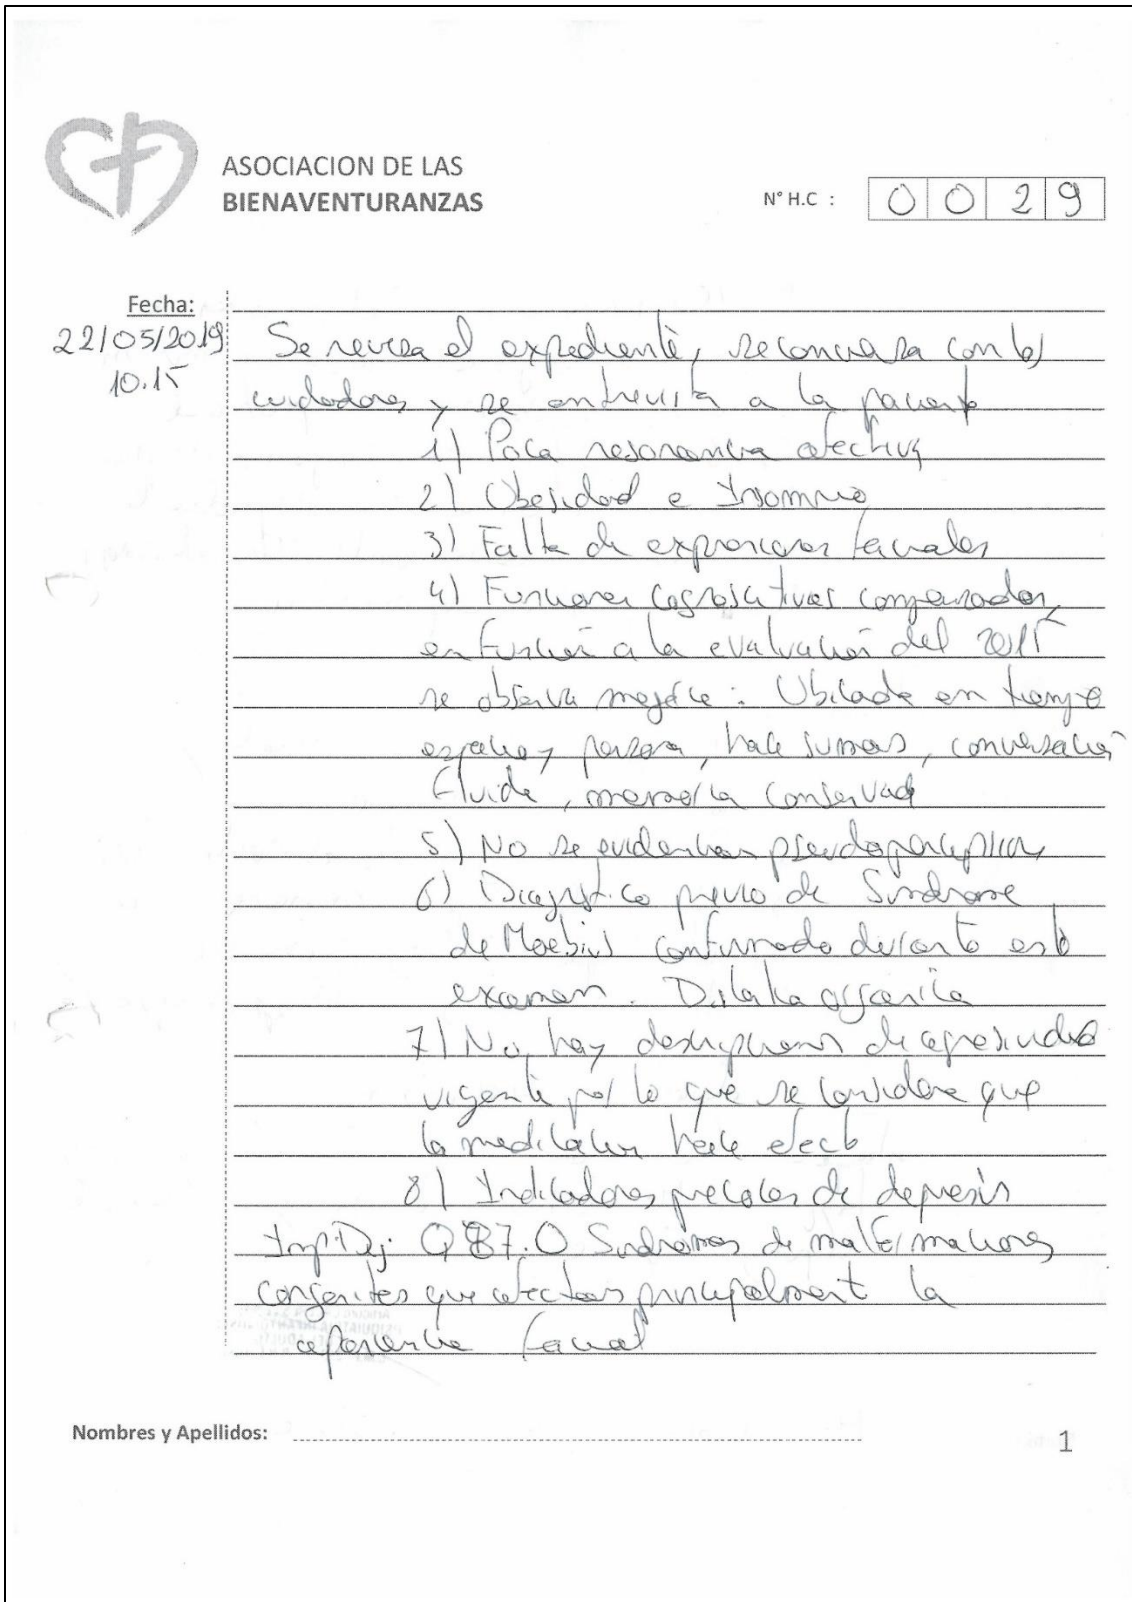 ASOCIACION DE LAS
BIENAVENTURANZAS
N° H.C : 0 0 2 9
Fecha:
22/05/2019
10.15
Se revisa el expediente, se conversa con los
cuidadores y se entrevista a la paciente
1) Poca resonancia afectiva
2) Obesidad e Insomnio
3) Falta de expresiones faciales
4) Funciones cognoscitivas compensadas,
en función a la evaluación del 2015
se observa mejoría : Ubicada en tiempo
espacio y persona, hace sumas, conversación
fluida, memoria conservada
5) No se evidencian pseudopercepciones
6) Diagnóstico previo de Síndrome
de Moebius confirmado durante este
examen. Dislalia orgánica
7) No hay descripciones de agresividad
vigente por lo que se considera que
la medicación hace efecto
8) Indicadores precoces de depresión
Imp. Dx: Q87.0 Síndromes de malformaciones
congénitas que afectan principalmente la
apariencia facial
Nombres y Apellidos:
1